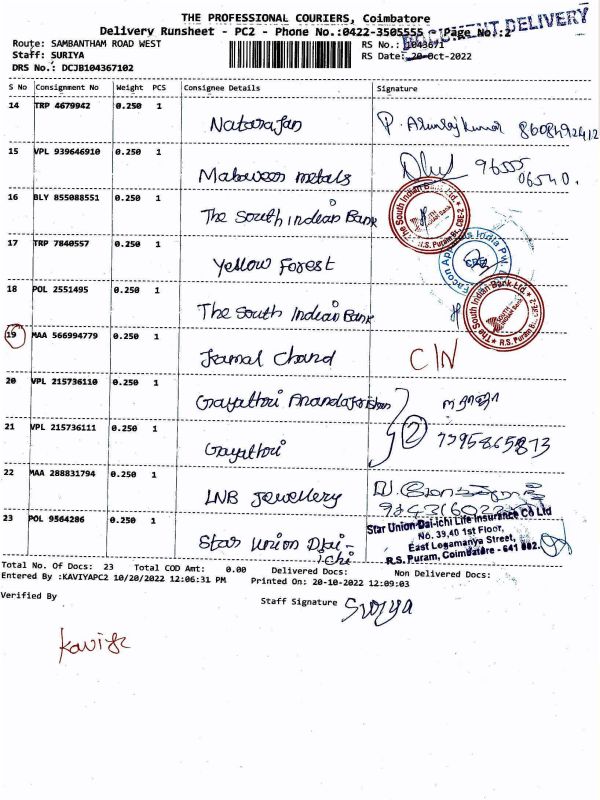 THE PROFESSIONAL COURIERS, Coimbatore
DOCUMENT DELIVERY
Delivery Runsheet - PC2 - Phone No.:0422-3505555 Page No.:2
Route: SAMBANTHAM ROAD WEST RS No.: 1043671
Staff: SURIYA RS Date: 20-Oct-2022
DRS No.: DCJB104367102
S No Consignment No Weight PCS Consignee Details Signature
14 TRP 4679942 0.250 1 Natarajan P. Arunraj kumar 8608492412
15 VPL 939646910 0.250 1 metals 96555
06540.
16 BLY 855088551 0.250 1 The South indian Bank
The South Indian Bank Ltd.
R.S. Puram Br. CBE-2
17 TRP 7840557 0.250 1 Yellow Forest
18 POL 2551495 0.250 1 The South Indian Bank
The South Indian Bank Ltd.
R.S. Puram Br. CBE-2
19 MAA 566994779 0.250 1 Kamal Chand C/N
20 VPL 215736110 0.250 1 Gayathori
21 VPL 215736111 0.250 1 Gayathori 2 7395865873
22 MAA 288831794 0.250 1 LNB Jewellery
23 POL 9564286 0.250 1 Star Union Dai-
ichi
Star Union Dai-ichi Life Insurance Co Ltd
No. 39,40 1st Floor,
East Logamanya Street,
R.S. Puram, Coimbatore - 641 002.
Total No. Of Docs: 23 Total COD Amt: 0.00 Delivered Docs: Non Delivered Docs:
Entered By :KAVIYAPC2 10/20/2022 12:06:31 PM Printed On: 20-10-2022 12:09:03
Verified By Staff Signature Suriya
Kaviya